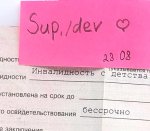 Sup,/dev ♡
23.08
идности Инвалидность с детства
становлена на срок до
освидетельствования бессрочно
заключения